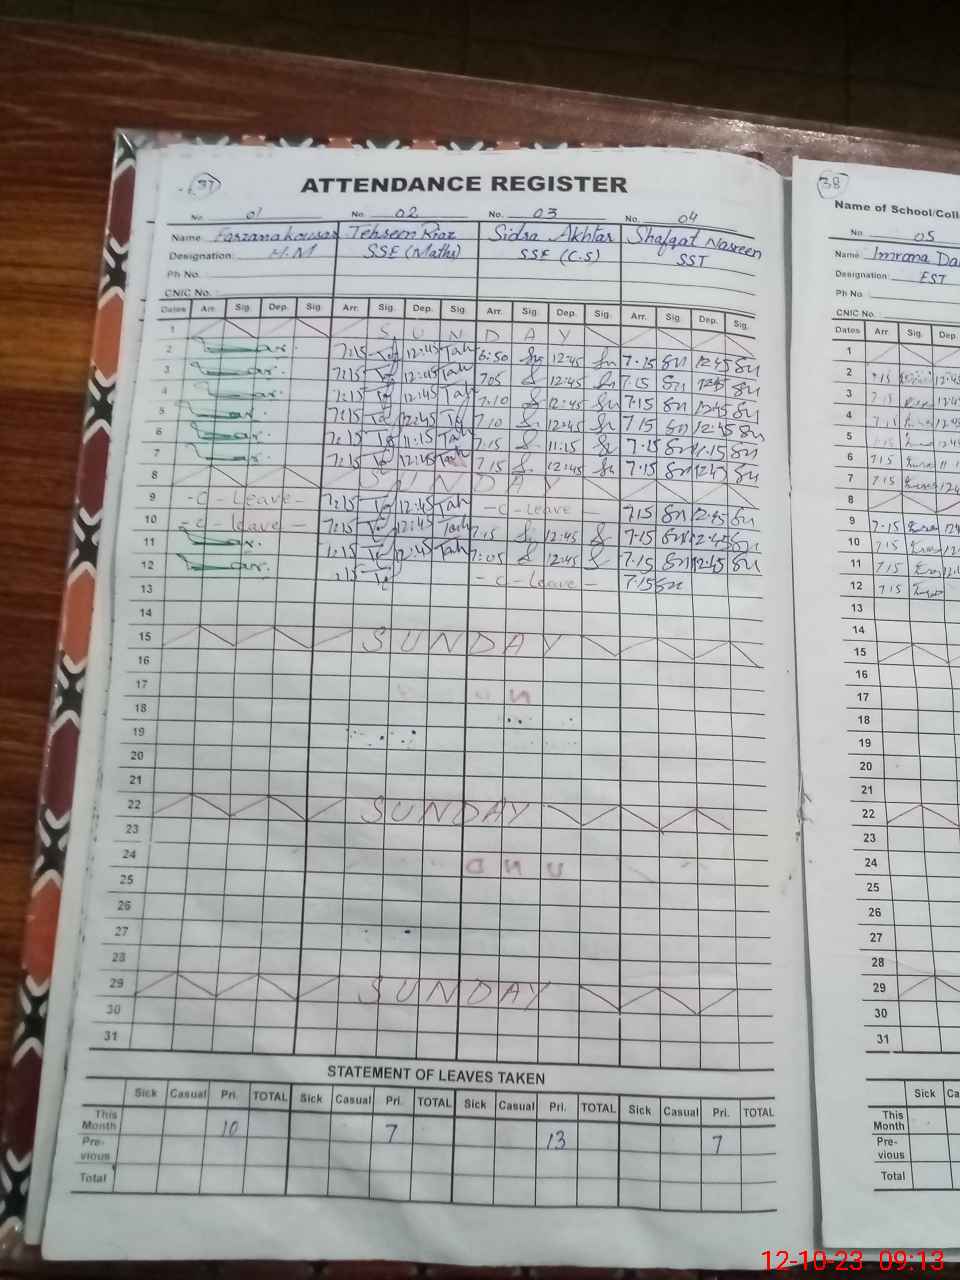 37
ATTENDANCE REGISTER
No. 01 No. 02 No. 03 No. 04
Name Farzana kousar Tehseen Riaz Sidra Akhtar Shafqat Nasreen
Designation: H.M SSE (Maths) SSE (C.S) SST
Ph No.
CNIC No. :
Dates Arr. Sig. Dep. Sig. Arr. Sig. Dep. Sig. Arr. Sig. Dep. Sig. Arr. Sig. Dep. Sig.
1 SUNDAY
2 7:15 12:45 6:50 12:45 7.15 12:45
3 7:15 12:45 7:05 12:45 7.15 12:45
4 7:15 12:45 7:10 12:45 7.15 12:45
5 7:15 12:45 7:10 12:45 7.15 12:45
6 7:15 11:15 7:15 11:15 7.15 11.15
7 7:15 12:45 7:15 12:45 7.15 12:45
8 SUNDAY
9 -C-Leave- 7:15 12:45 -C-leave- 7.15 12:45
10 -C-leave- 7:15 12:45 7:15 12:45 7.15 12:45
11 7:15 12:45 7:05 12:45 7.15 12:45
12 7:15 -C-leave- 7.15
13
14
15 SUNDAY
16
17
18
19
20
21
22 SUNDAY
23
24
25
26
27
28
29 SUNDAY
30
31
STATEMENT OF LEAVES TAKEN
Sick Casual Pri. TOTAL Sick Casual Pri. TOTAL Sick Casual Pri. TOTAL Sick Casual Pri. TOTAL
This Month 10 7 13 7
Pre-
vious
Total
38
Name of School/Coll
No. 05
Name Imrana
Designation: EST
Ph No. :
CNIC No. :
Dates Arr. Sig. Dep.
1
2 7:15 12:45
3 7:15
4 7:15
5 7:15
6 7:15
7 7:15
8
9 7:15
10 7:15
11 7:15
12 7:15
13
14
15
16
17
18
19
20
21
22
23
24
25
26
27
28
29
30
31
Sick Ca
This
Month
Pre-
vious
Total
12-10-23 09:13